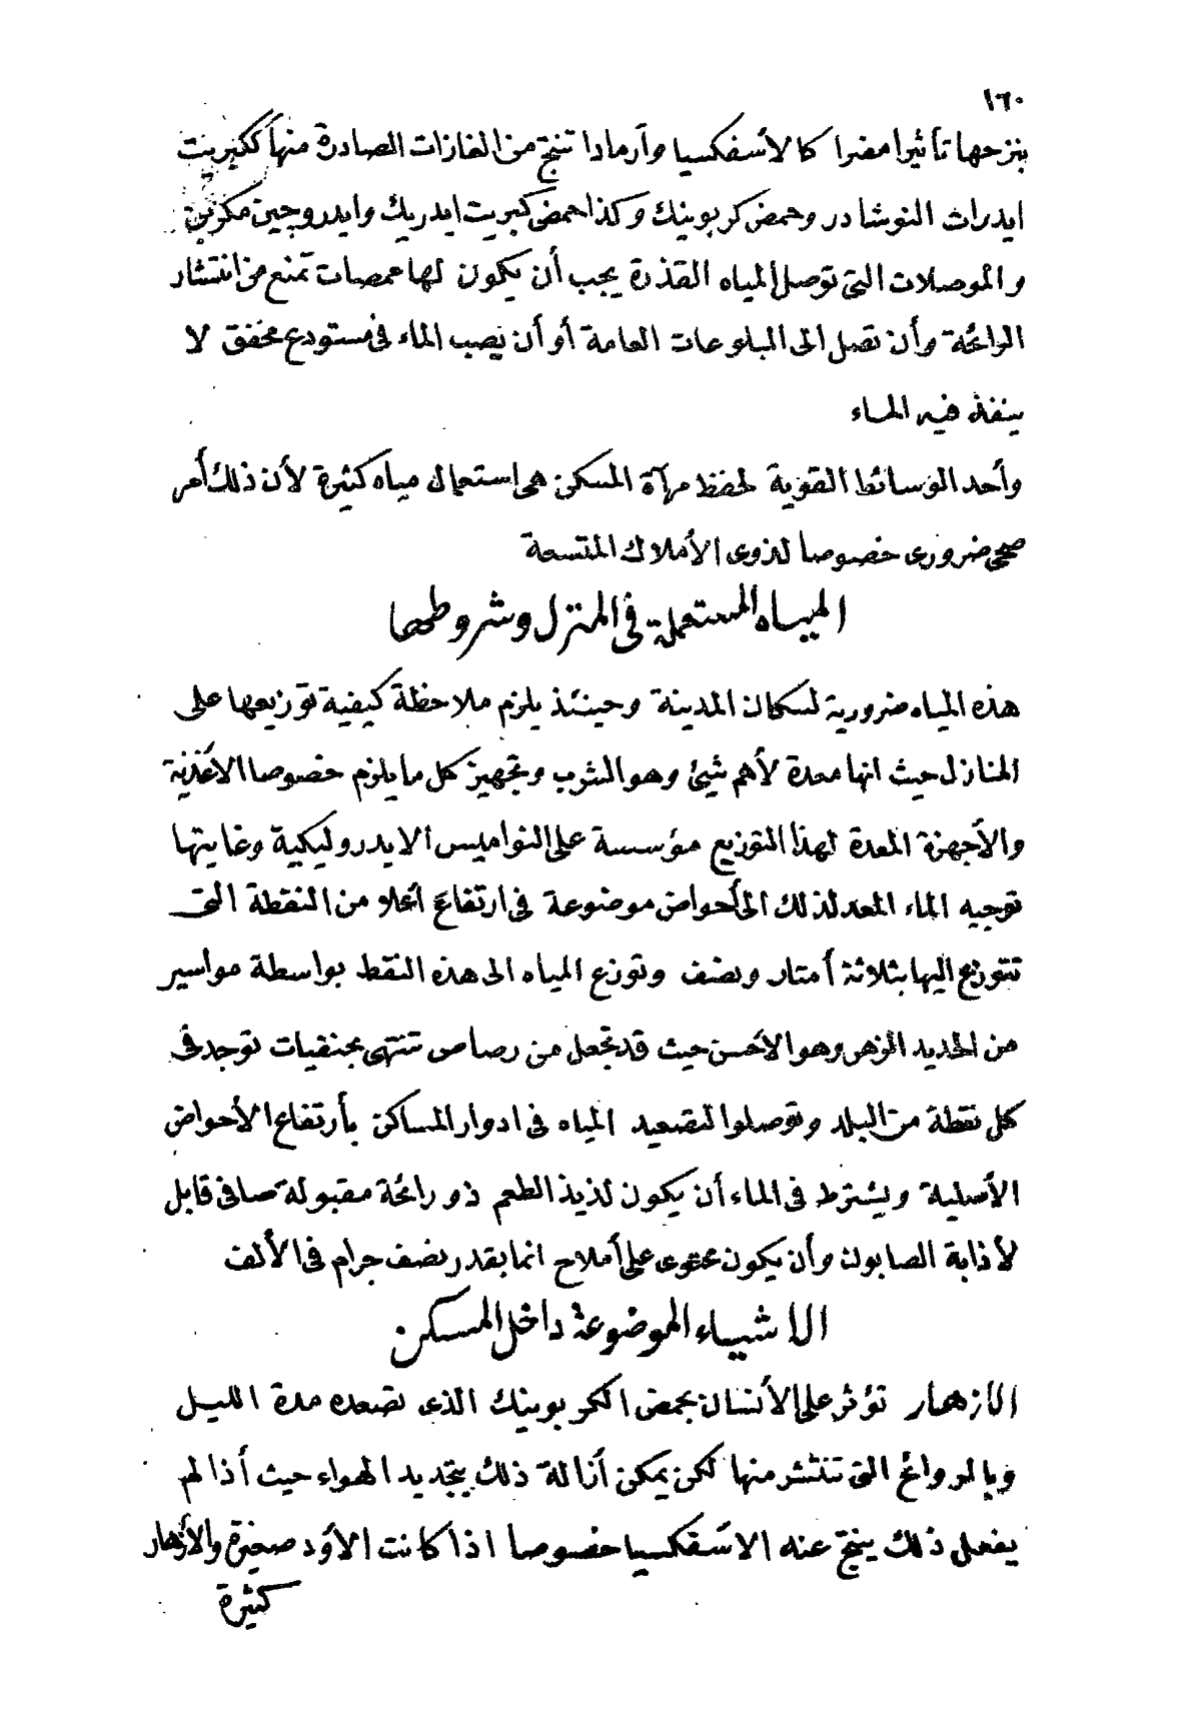 ١٦٠
بنزحها تأثيرا مضرا كالأسفكسيا وأرمادا تنتج من الغازات الصادرة منها ككبريت
ايدرات النوشادر وحمض كربونيك وكذا حمض كبريت ايدريك وايدروجين مكربن
والموصلات التى توصل المياه القذرة يجب أن يكون لها ممصات تمنع من انتشار
الرائحة وأن تصل الى البلوعات العامة أو أن يصب الماء فى مستودع مخفق لا
ينفذ فيه الماء
وأحد الوسائط القوية لحفظ مرآة المسكن هى استعمال مياه كثيرة لأن ذلك أمر
صحى ضرورى خصوصا لذوى الأملاك المتسعة
المياه المستعملة فى المنزل وشروطها
هذه المياه ضرورية لسكان المدينة وحينئذ يلزم ملاحظة كيفية توزيعها على
المنازل حيث انها معدة لأهم شيئ وهو الشرب وتجهيز كل ما يلزم خصوصا الاغذية
والأجهزة المعدة لهذا التوزيع مؤسسة على النواميس الايدروليكية وغايتها
توجيه الماء المعد لذلك الى أحواض موضوعة فى ارتفاع أعلا من النقطة التى
تتوزع اليها بثلاثة أمتار ونصف وتوزع المياه الى هذه النقط بواسطة مواسير
من الحديد الزهر وهو الأحسن حيث قد تجعل من رصاص تنتهى بحنفيات توجد فى
كل نقطة من البلد وتوصلوا لتصعيد المياه فى ادوار المساكن بأرتفاع الأحواض
الأصلية ويشترط فى الماء أن يكون لذيذ الطعم ذو رائحة مقبولة صافى قابل
لأذابة الصابون وأن يكون محتوى على أملاح انما بقدر نصف جرام فى الألف
الاشياء الموضوعة داخل المسكن
الازهار تؤثر على الأنسان بحمض الكربونيك الذى تصعده مدة الليل
وبالروائح التى تنتشر منها لكن يمكن أزالة ذلك بتجديد الهواء حيث أذا لم
يفعل ذلك ينتج عنه الاسفكسيا خصوصا اذا كانت الأود صغيرة والأزهار
كثيرة